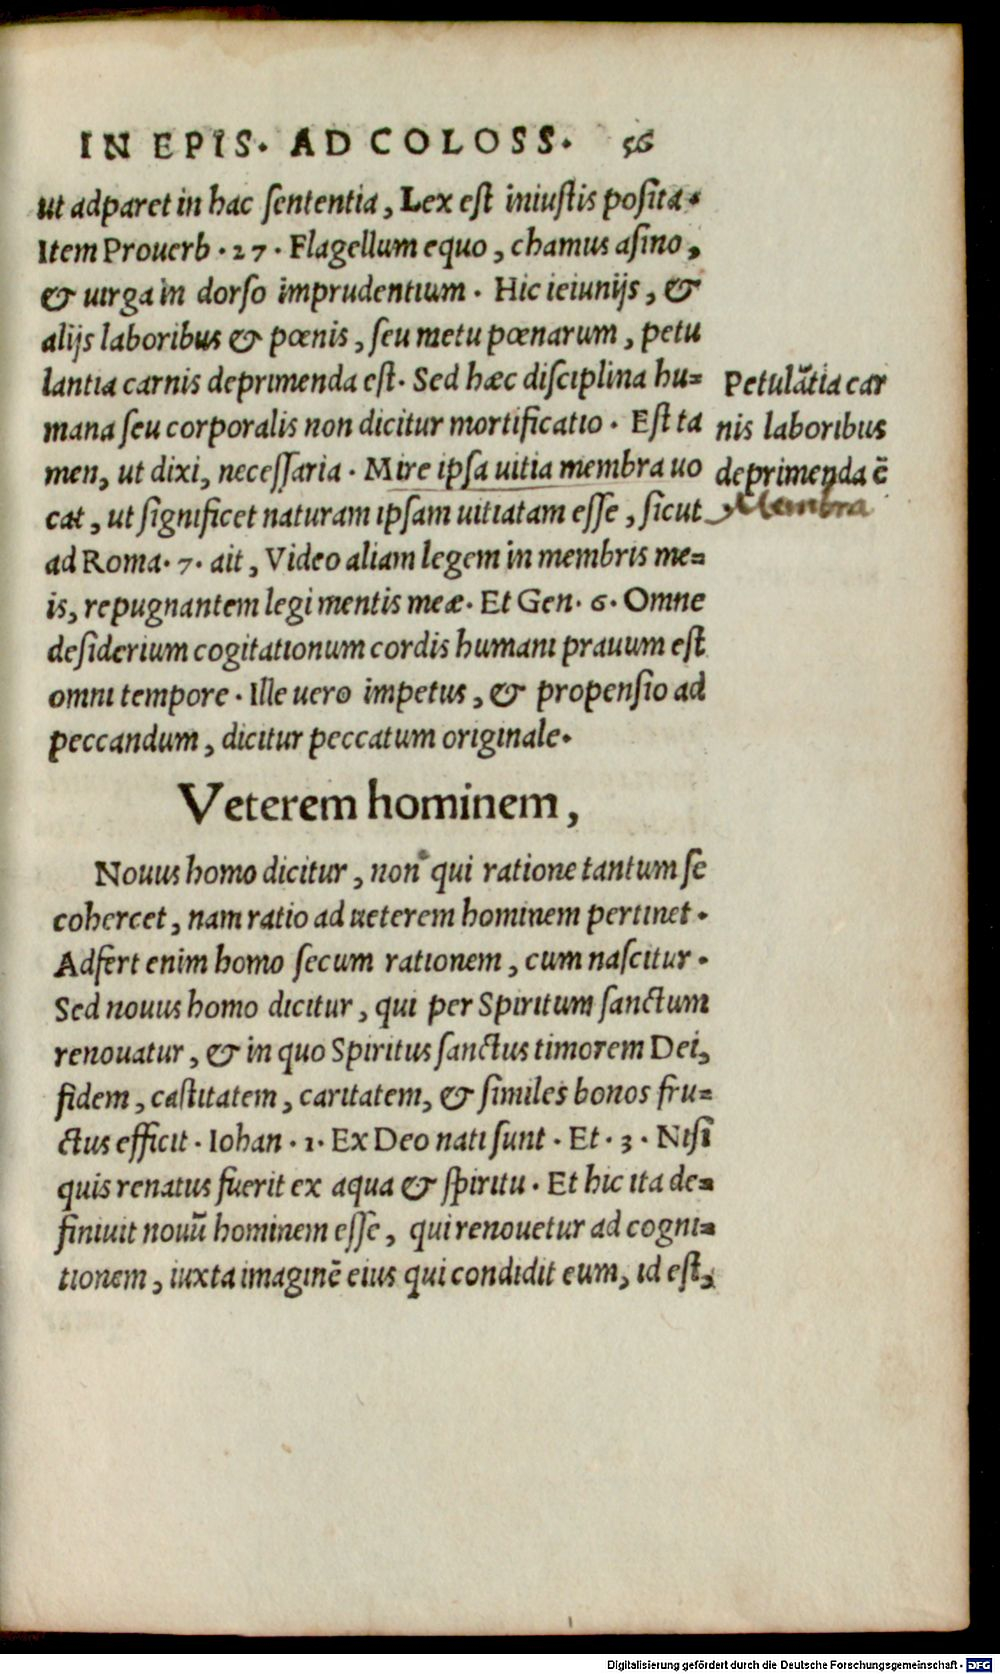 IN EPIS. AD COLOSS. 56
ut adparet in hac sententia, Lex est iniustis posita.
Item Prouerb. 27. Flagellum equo, chamus asino,
& uirga in dorso imprudentium. Hic ieiunijs, &
alijs laboribus & pœnis, seu metu pœnarum, petu
lantia carnis deprimenda est. Sed hæc disciplina hu=
mana seu corporalis non dicitur mortificatio. Est ta
men, ut dixi, necessaria. Mire ipsa uitia membra uo
cat, ut significet naturam ipsam uitiatam esse, sicut
ad Roma. 7. ait, Video aliam legem in membris me=
is, repugnantem legi mentis meæ. Et Gen. 6. Omne
desiderium cogitationum cordis humani prauum est
omni tempore. Ille uero impetus, & propensio ad
peccandum, dicitur peccatum originale.
Petulātia car
nis laboribus
deprimenda ē
Membra
Veterem hominem,
Nouus homo dicitur, non qui ratione tantum se
cohercet, nam ratio ad ueterem hominem pertinet.
Adfert enim homo secum rationem, cum nascitur.
Sed nouus homo dicitur, qui per Spiritum sanctum
renouatur, & in quo Spiritus sanctus timorem Dei,
fidem, castitatem, caritatem, & similes bonos fru=
ctus efficit. Iohan. 1. Ex Deo nati sunt. Et. 3. Nisi
quis renatus fuerit ex aqua & spiritu. Et hic ita de=
finiuit nouū hominem esse, qui renouetur ad cogni=
tionem, iuxta imaginē eius qui condidit eum, id est,
Digitalisierung gefördert durch die Deutsche Forschungsgemeinschaft - DFG